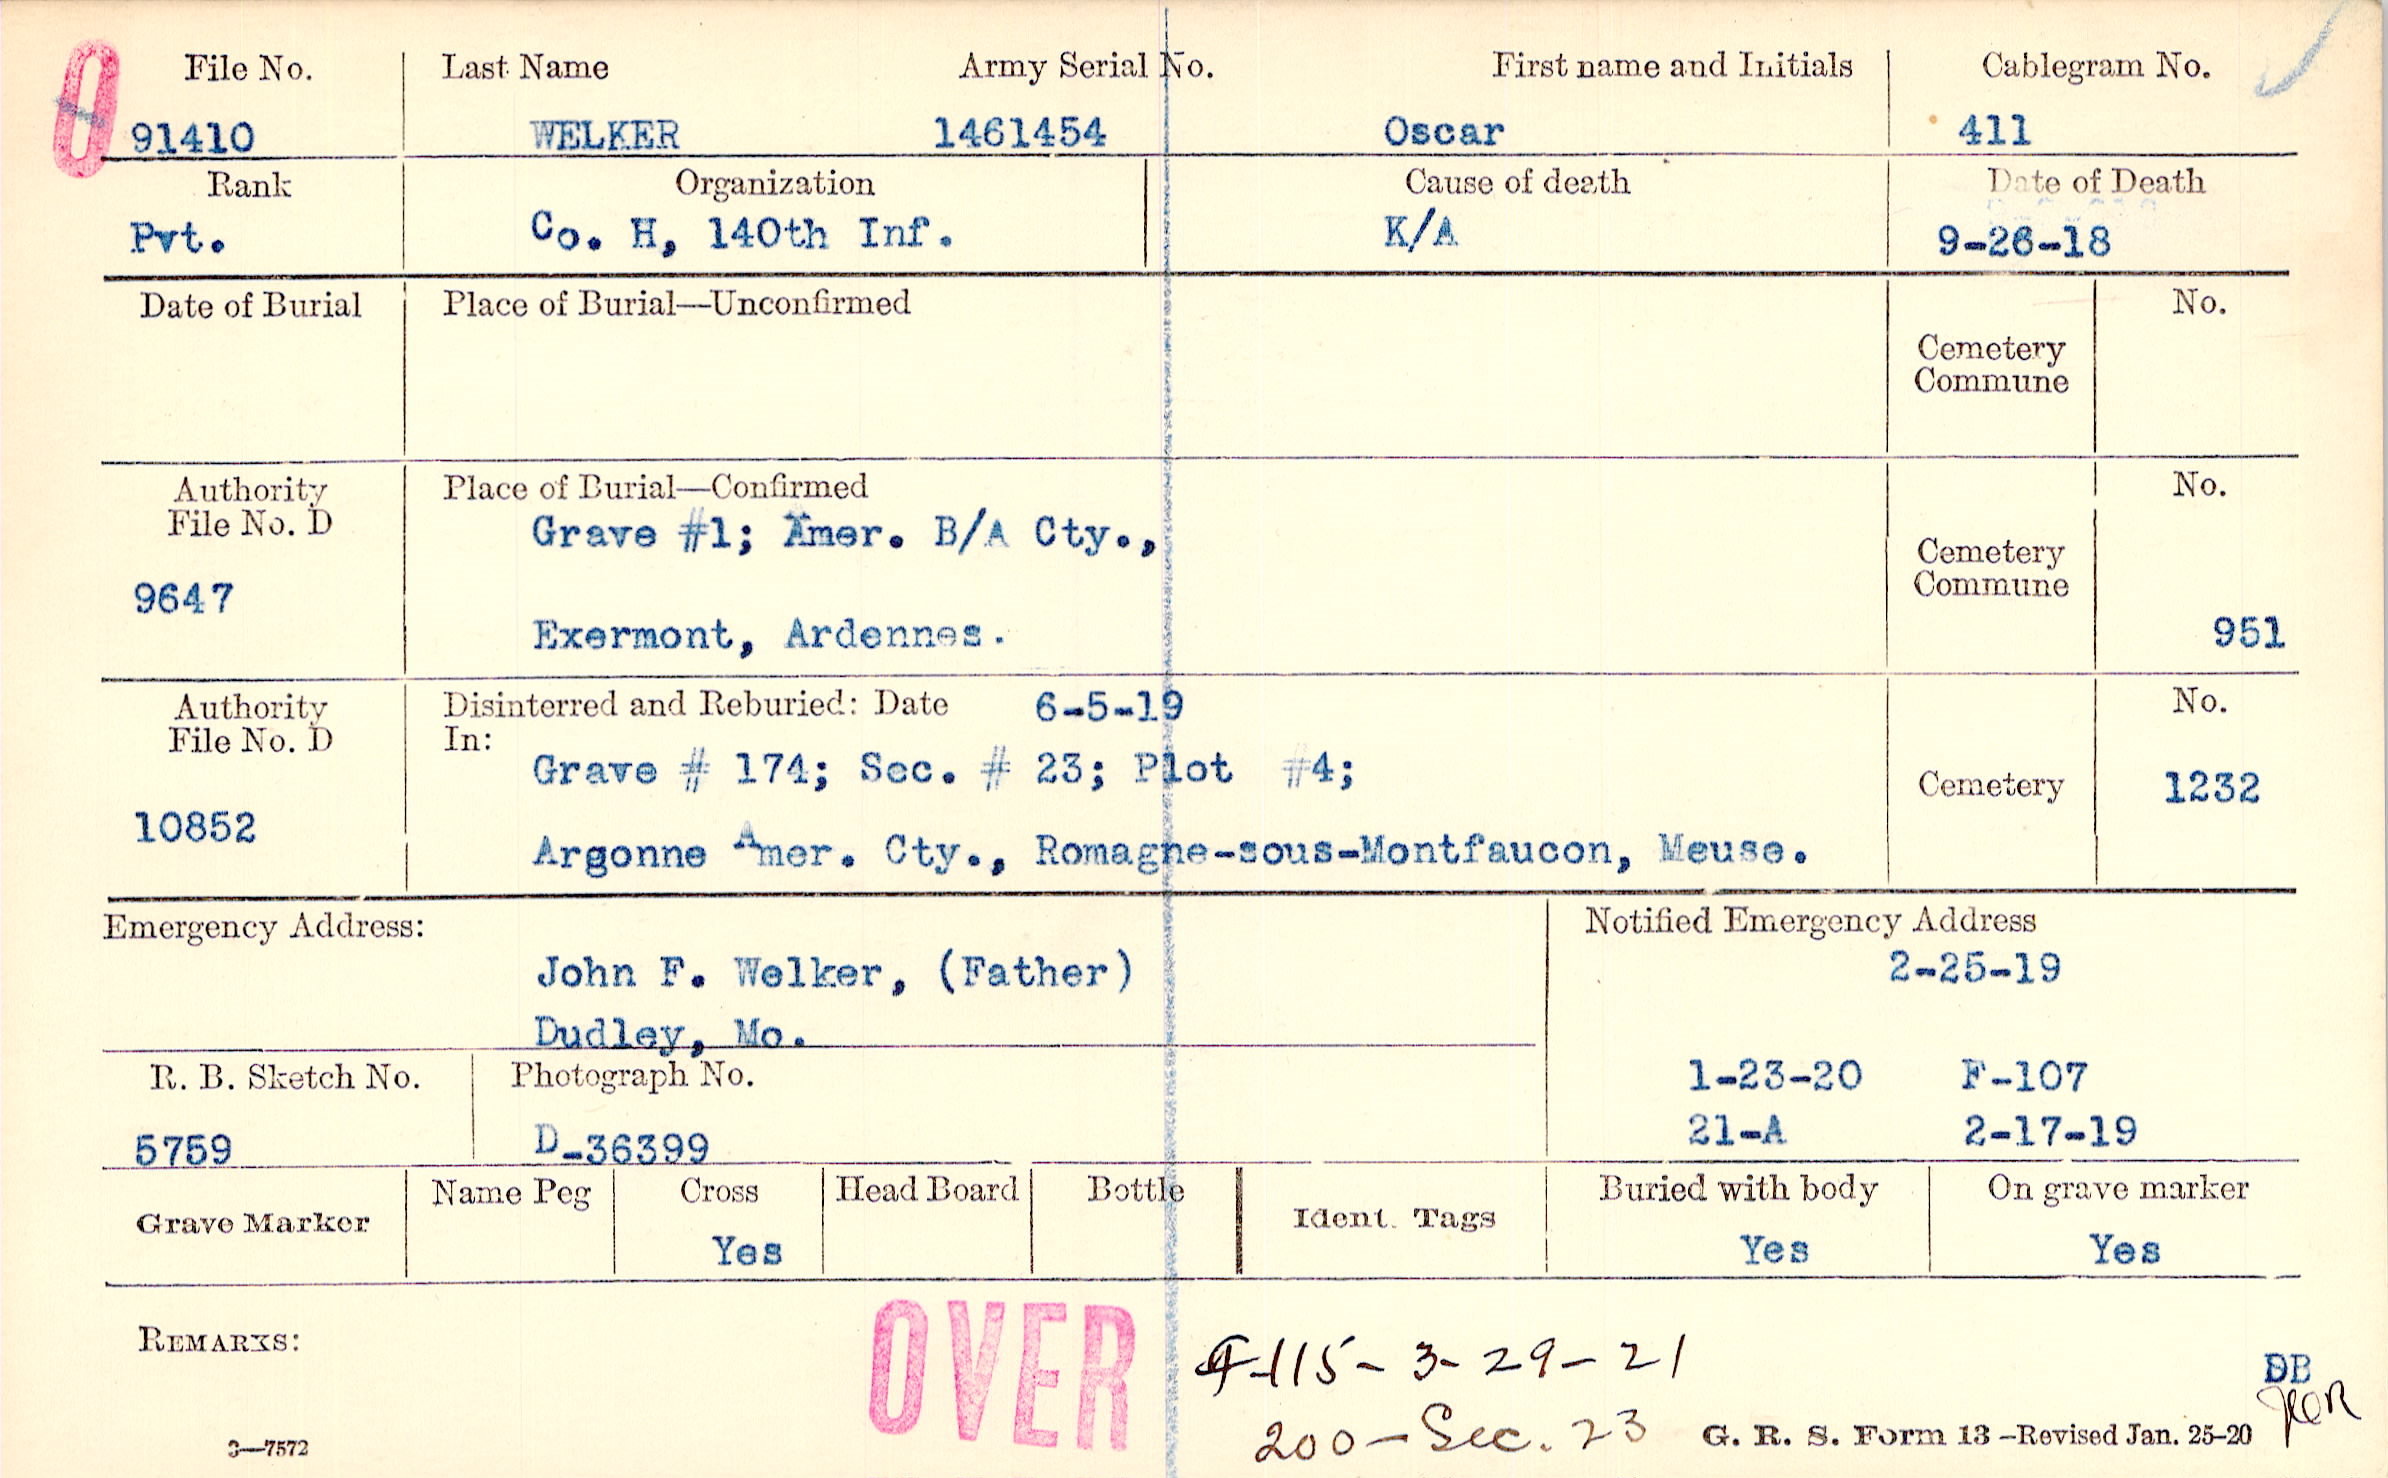 O
File No. Last Name Army Serial No. First name and Initials Cablegram No.
91410 WELKER 1461454 Oscar 411
Rank Organization Cause of death Date of Death
Pvt. Co. H, 140th Inf. K/A 9-26-18
Date of Burial Place of Burial—Unconfirmed No.
Cemetery
Commune
Authority Place of Burial—Confirmed No.
File No. D Grave #1; Amer. B/A Cty.,
Cemetery
9647 Commune
Exermont, Ardennes. 951
Authority Disinterred and Reburied: Date 6-5-19 No.
File No. D In:
Grave # 174; Sec. # 23; Plot #4;
Cemetery 1232
10852
Argonne Amer. Cty., Romagne-sous-Montfaucon, Meuse.
Emergency Address: Notified Emergency Address
John F. Welker, (Father) 2-25-19
Dudley, Mo.
R. B. Sketch No. Photograph No. 1-23-20 F-107
5759 D-36399 21-A 2-17-19
Name Peg Cross Head Board Bottle Buried with body On grave marker
Grave Marker Ident. Tags
Yes Yes Yes
REMARKS: OVER
-115-3-29-21
DB
200-Sec. 23
3—7572 G. R. S. Form 13 -Revised Jan. 25-20